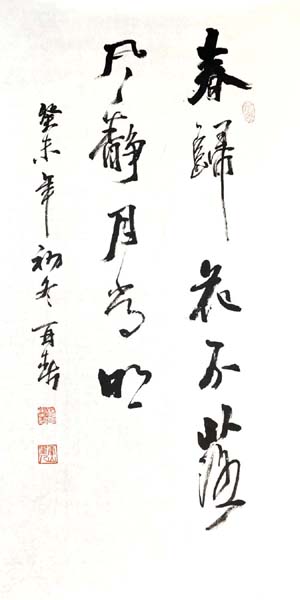 春歸花不落
風靜月常明
癸未年初冬